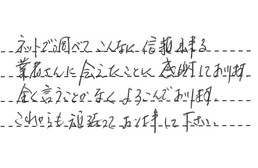 ネットで調べて こんなに 信頼出来る
業者さんに 会えたことに 感謝しております。
全く言うことがなく よろこんでおります。
これからも 頑張って お仕事して下さい。